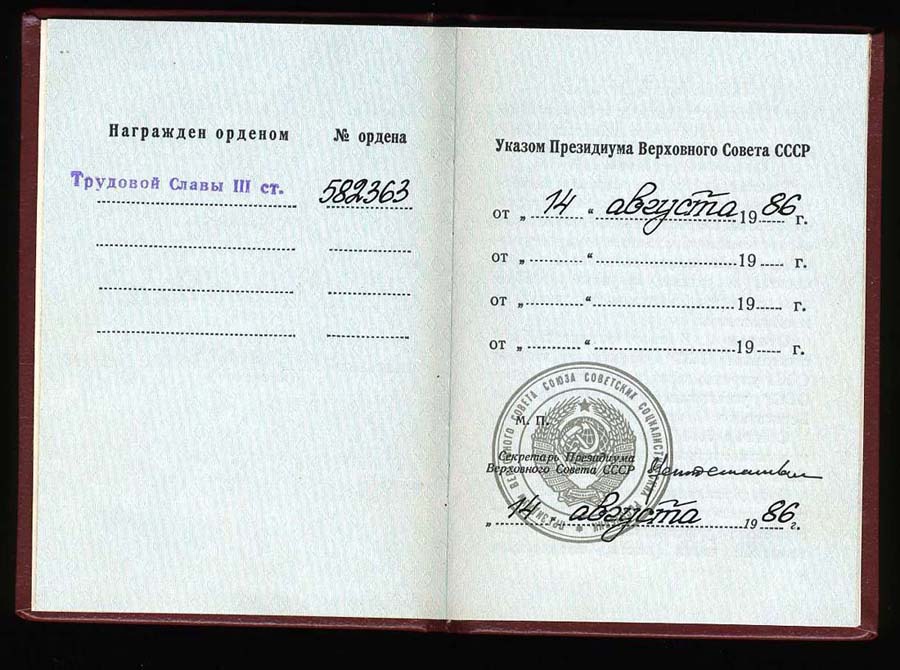 Награжден орденом
№ ордена
Трудовой Славы III ст.
582363
Указом Президиума Верховного Совета СССР
от „ 14 “ августа 1986 г.
от „ “ 19 г.
от „ “ 19 г.
от „ “ 19 г.
М. П.
Секретарь Президиума
Верховного Совета СССР
„ 14 августа 1986 г.
ВЕРХОВНОГО СОВЕТА СОЮЗА СОВЕТСКИХ